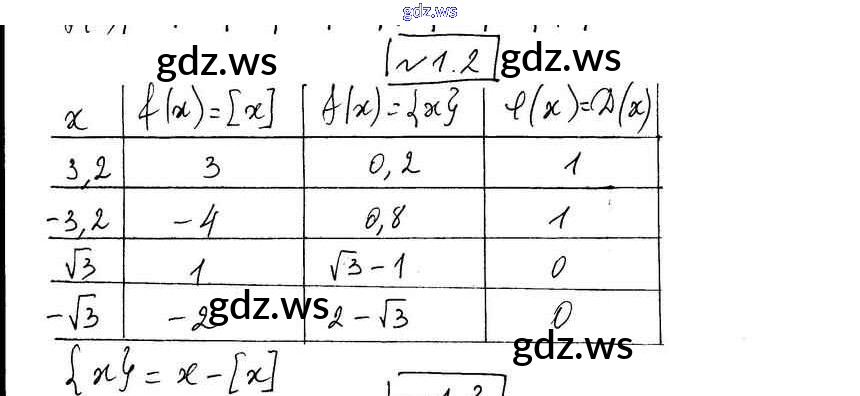 gdz.ws
№1.2
gdz.ws gdz.ws
x | f(x)=[x] | f(x)={x} | φ(x)=D(x)
3,2 | 3 | 0,2 | 1
-3,2 | -4 | 0,8 | 1
√3 | 1 | √3-1 | 0
-√3 | -2 | 2-√3 | 0
gdz.ws
gdz.ws
{x} = x-[x]